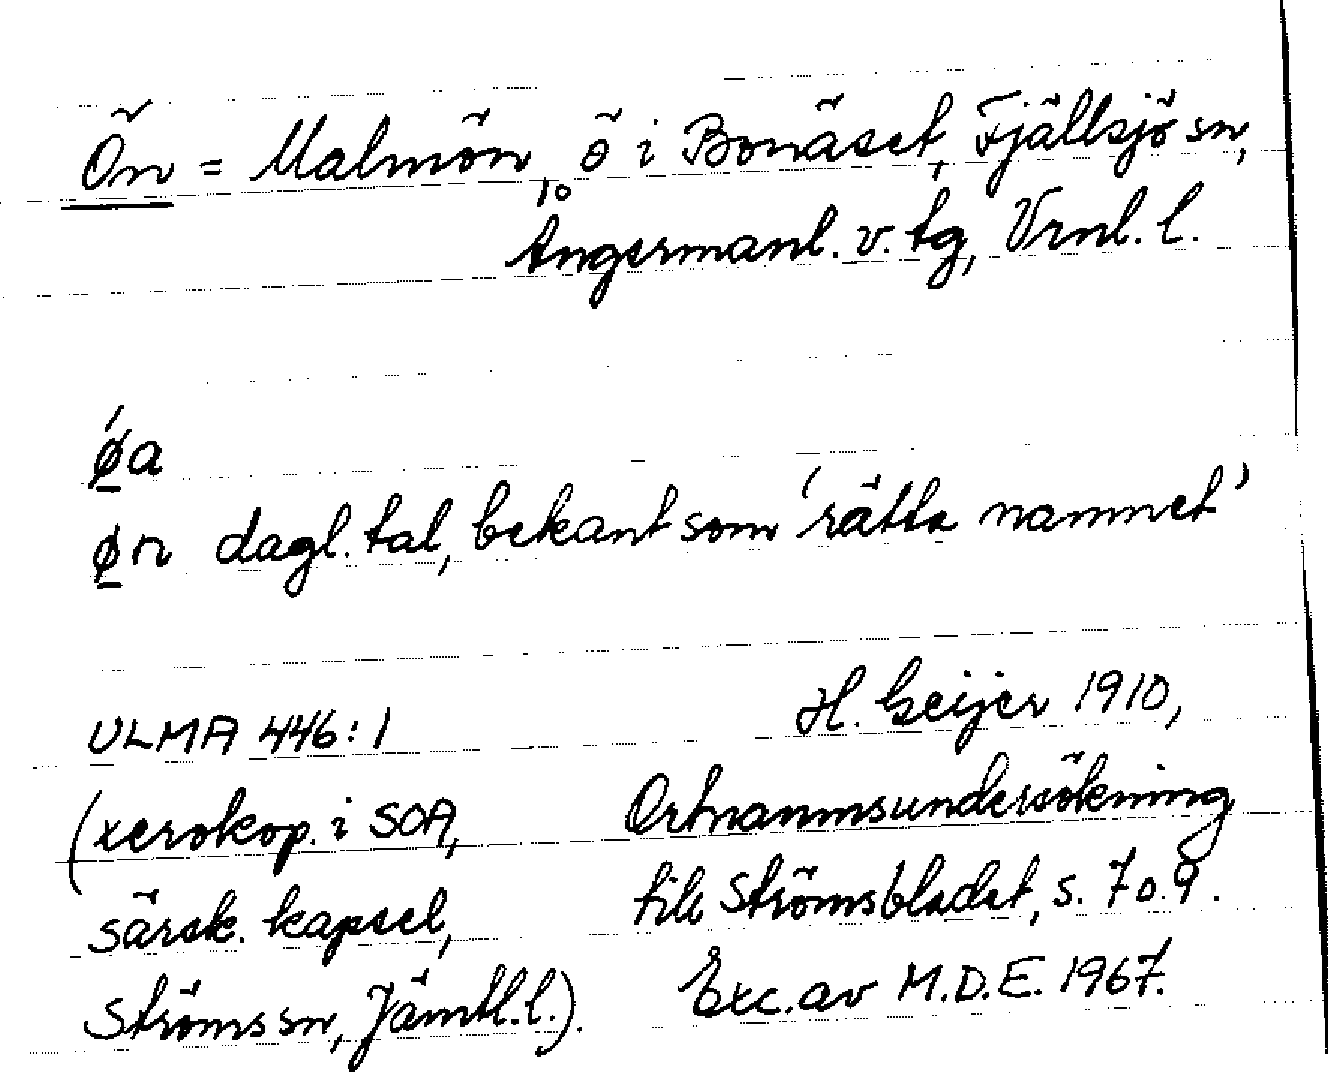 Ön = Malmön, ö i Bonäset, Fjällsjö sn,
Ångermanl. v. tg, Vrnl. l.
ǿa
øn dagl. tal, bekant som 'rätta namnet'
ULMA 446:1
H. Geijer 1910,
(xerokop. i SOA,
Ortnamnsundersökning
särsk. kapsel,
till Strömsbladet, s. 7 o. 9.
Ströms sn, Jämtl. l.).
Exc. av M.D.E. 1967.